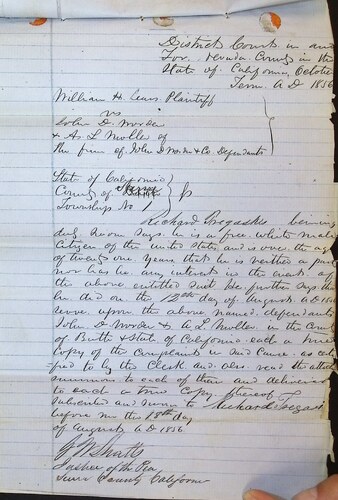 District Court in and
For Nevada County in the
Stat of California, October
Term A D 1856
William H. Cears Plaintiff
vs
John D. Worden
& A. L Moller of
the firm of John D Worden & Co. Defendants
State of California
County of
Township No 1
ss
Richard Tregaskis being
duly sworn says he is a free white male
Citizen of the united States and is over the age
of twenty one Years that he is neither a party
nor has he any interest in the event of
the above entitled suit He further says that
he did on the 13th day of August A D 1856
serve upon the above named defendants
John D. Worden & A. L. Moller in the County
of Butte & Stat of California each a true
Copy of the Complaint in said Cause as certi
fied to by the Clerk and also read the attached
summons to each of them and delivered
to each a true Copy thereof
Subscribed and sworn to
before me this 18th day
of August A D 1856
Richard Tregaskis
Justice of the Peace
Sierra County California